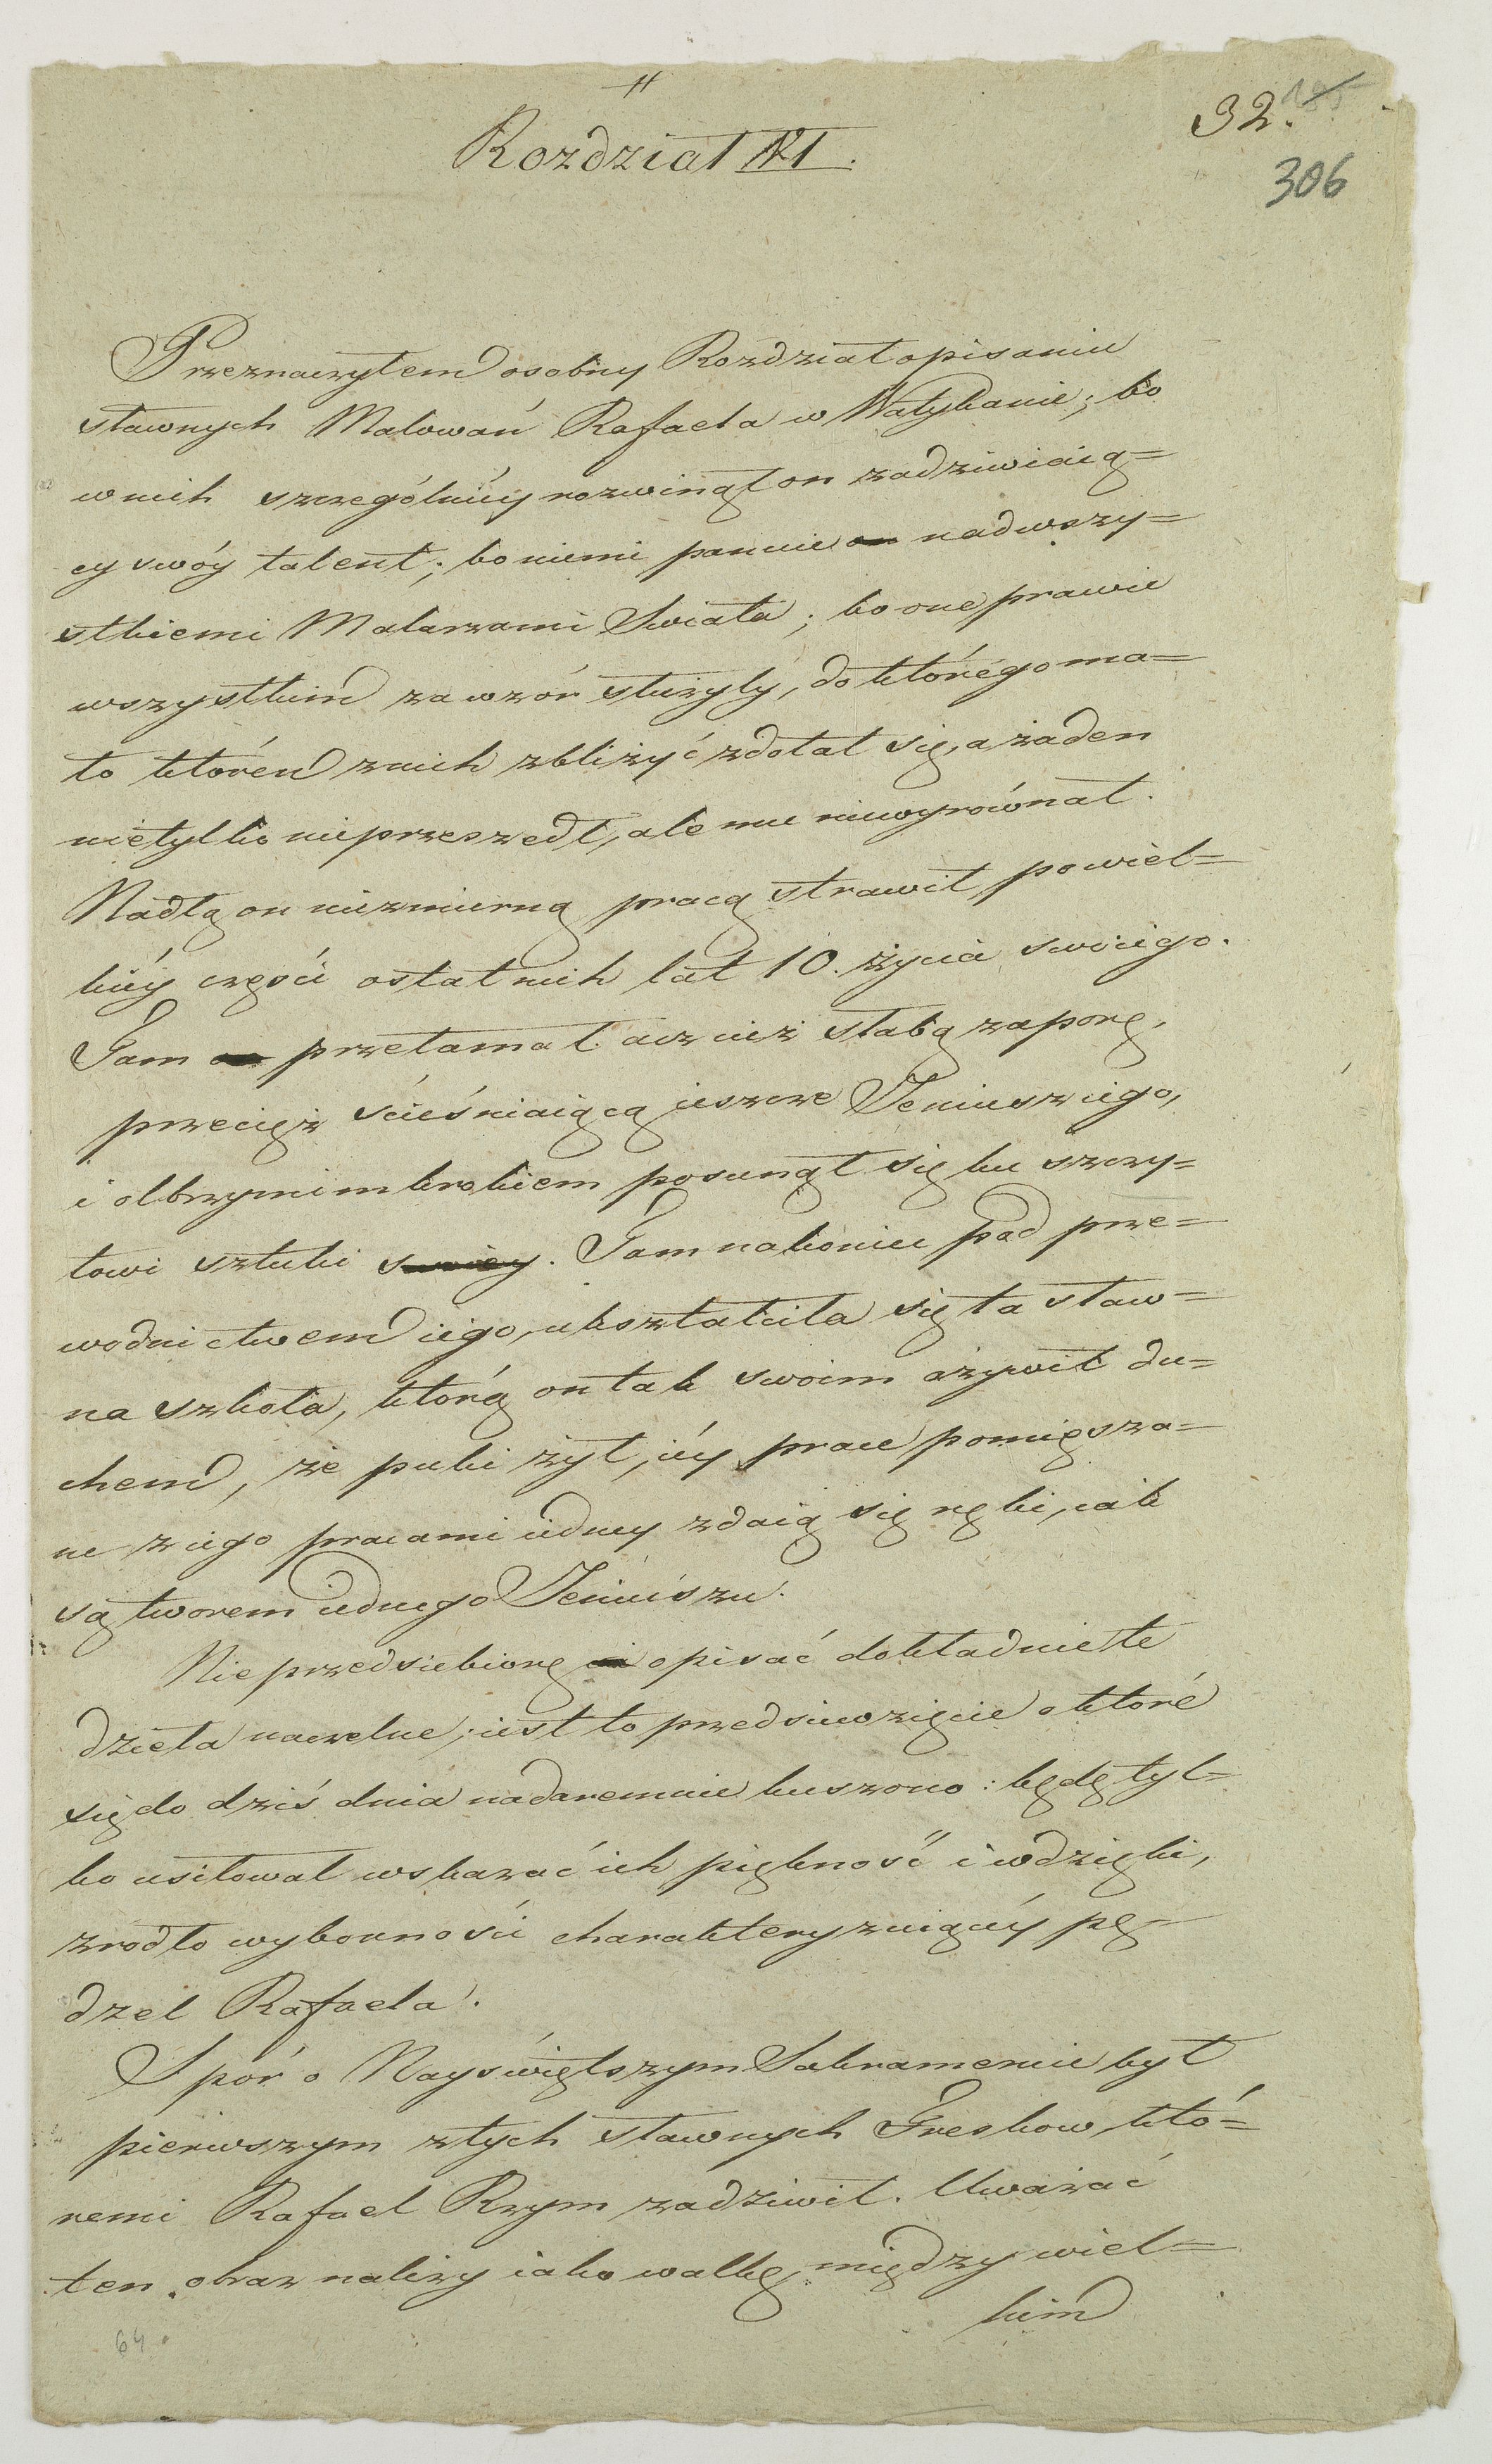 32.
306
Rozdział VI.
Przeznaczyłem osobny Rozdział opisaniu
sławnych Malowań Rafaela w Watykanie; bo
w nich szczególniéy rozwinął on zadziwiaią=
cy swóy talent; bo niemi panuie nad wszy=
stkiemi Malarzami Swiata; bo one prawie
wszystkim za wzór służyły, do którégo ma=
ło któren z nich zbliżyć zdołał się, a żaden
nietylko nieprzeszedł, ale mu niewyrównał.
Nad tą on niezmierną pracą strawił po wiel=
kiéy części ostatnich lat 10. życia swoiego.
Tam przełamał acz nie ż słabą zaporę,
przecięż ścieśniaiącą ieszcze Jeniusz iego,
i olbrzymim krokiem posunął się ku szczy=
towi sztuki. Tam nakoniec pod prze=
wodnictwem iego, ukształciła się ta sław=
na szkoła, którą on tak swoim ożywił du=
chem, że puki żył, iéy prace pomiesza=
ne z iego pracami iedney zdaią się ręki, iak
są tworem iednego Jeniuszu.
Nie przedsiebiorę opisać dokładnie te
dzieła naczelne; iest to przedsiewzięcie o które
się do dziś dnia nadaremnie kuszono: będę tyl=
ko usiłował wskazać ich piękność i wdzięki,
zrodło wybornosci charakteryzuiącéy pę=
dzel Rafaela.
Spór o Nayświętszym Sakramencie był
pierwszym z tych sławnych Fresków, któ=
remi Rafael Rzym zadziwił. Uważać
ten obraz należy iako walkę między wiel=
kim
64